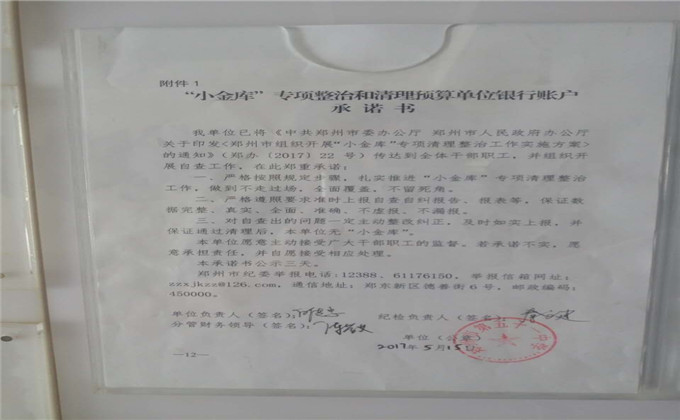 附件1
“小金库”专项整治和清理预算单位银行账户
承 诺 书
我单位已将《中共郑州市委办公厅 郑州市人民政府办公厅
关于印发<郑州市组织开展“小金库”专项清理整治工作实施方案>
的通知》（郑办〔2017〕22 号）传达到全体干部职工，并组织开
展自查工作，在此郑重承诺：
一、严格按照规定步骤，扎实推进“小金库”专项清理整治
工作，做到不走过场，全面覆盖，不留死角。
二、严格遵照要求准时上报自查自纠报告、报表等，保证数
据完整、真实、全面、准确、不虚报、不漏报。
三、对自查出的问题一定主动整改纠正，及时如实上报，并
保证通过清理后，本单位无“小金库”。
本单位愿意主动接受广大干部职工的监督。若承诺不实，愿
意承担责任，并自愿接受相应处理。
本承诺书公示三天。
郑州市纪委举报电话:12388、61176150，举报信箱网址：
zzxjkzz@126.com，通信地址：郑东新区德善街6号，邮政编码：
450000。
单位负责人（签名） 纪检负责人（签名）
分管财务领导（签名）
单位（公章）
2017年5月15日
—12—